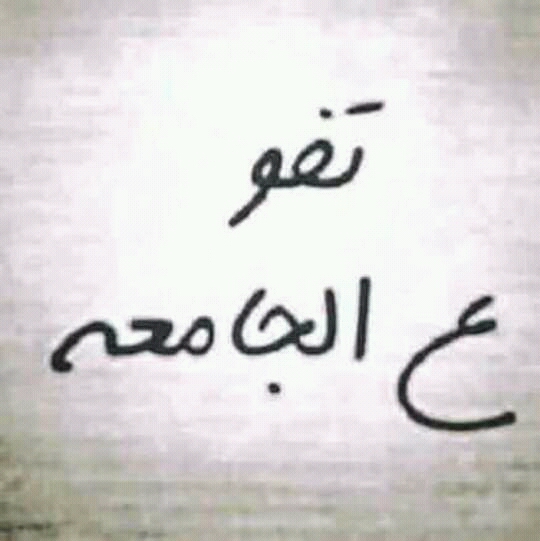 تفو
ع الجامعه